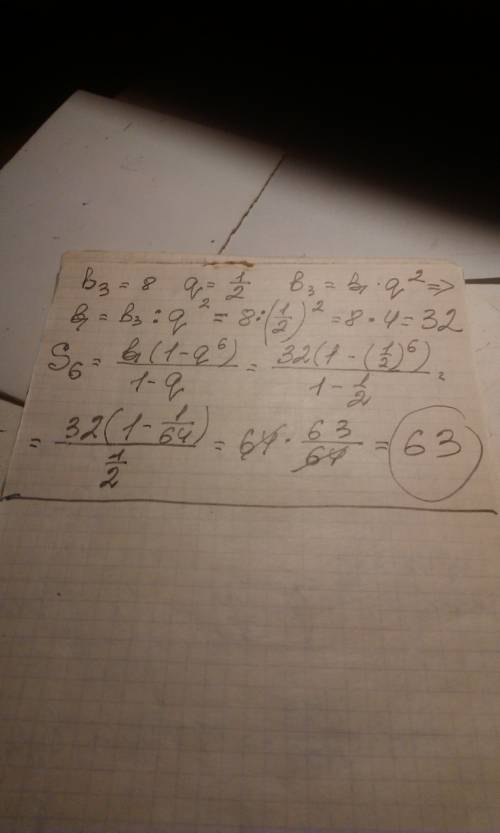 b₃ = 8 q = 1/2 b₃ = b₁ · q² =>
b₁ = b₃ : q² = 8 : (1/2)² = 8 · 4 = 32
S₆ = b₁(1-q⁶)/(1-q) = 32(1-(1/2)⁶)/(1-1/2) =
= 32(1-1/64)/(1/2) = 64 · 63/64 = 63